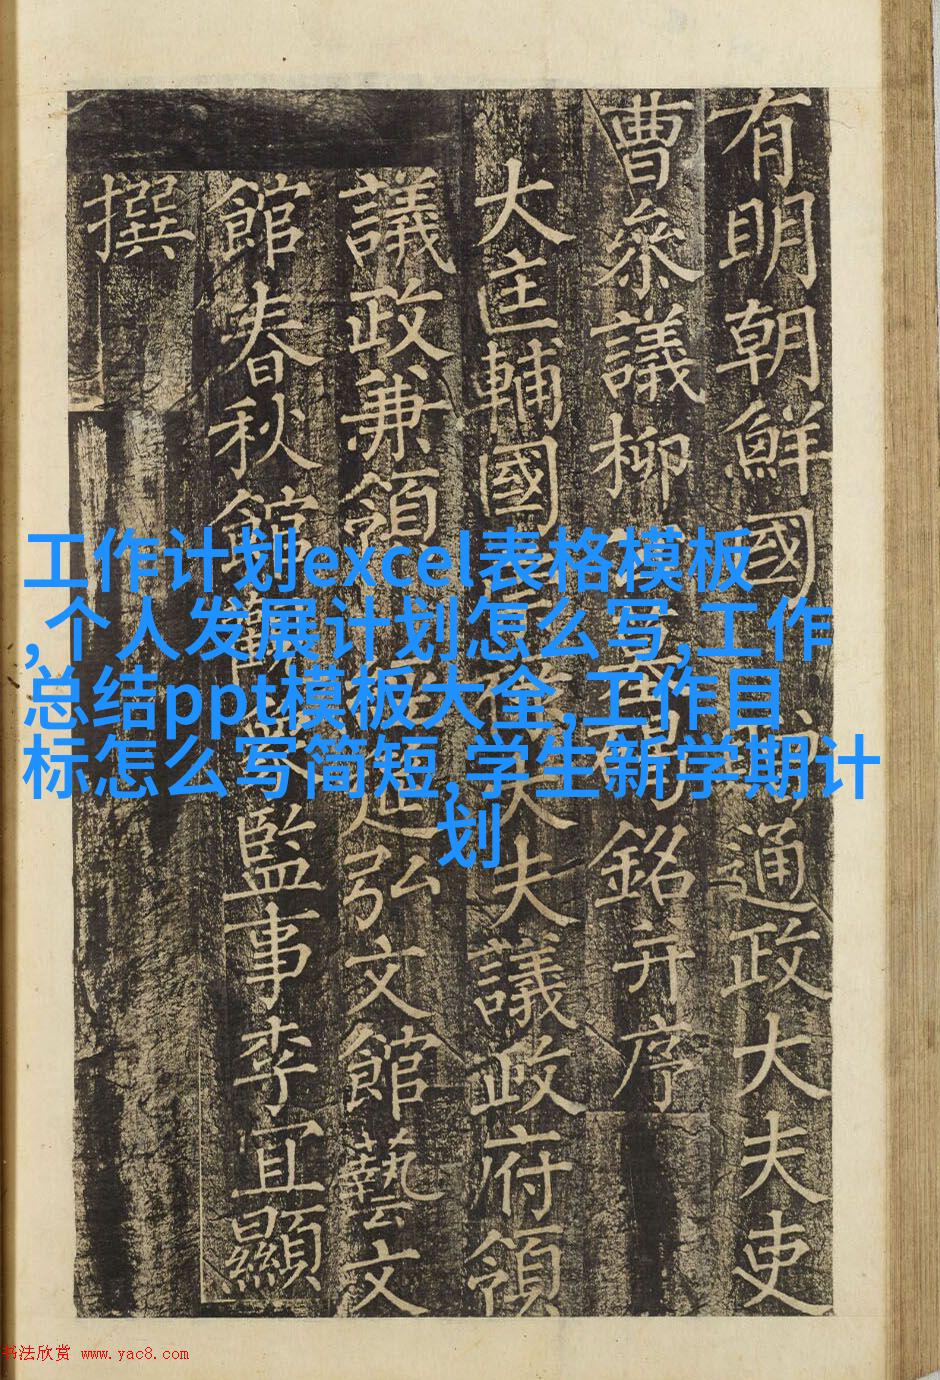 有明朝鮮國通政大夫吏
曹參議柳銘并序
大匡輔國大夫議政府領
議政兼領筵弘文館藝文
館春秋館監事李宜顯
撰
工作计划excel表格模板
,个人发展计划怎么写,工作
总结ppt模板大全,工作目
标怎么写简短,学生新学期计
划
书法欣赏 www.yac8.com